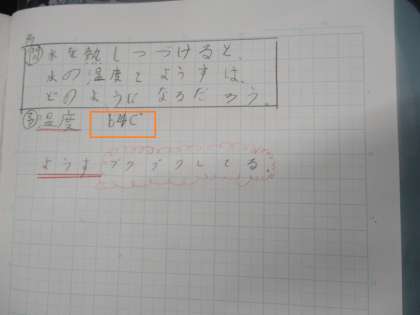 問 水を熱しつづけると、
水の温度とようすは、
どのようになるだろう。
予 温度 64C°
ようす ブクブクしてる。